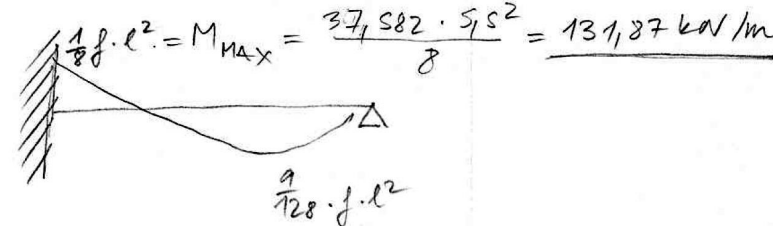 1/8 f · l² = M MAX = 37,582 · 5,5² / 8 = 131,87 kN/m
9/128 · f · l²